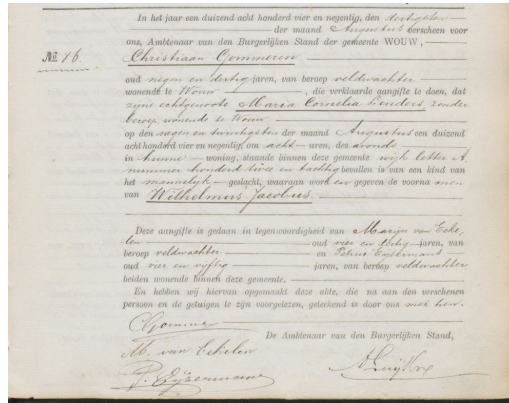 In het jaar een duizend acht honderd vier en negentig, den dertigsten
der maand Augustus verscheen voor
ons, Ambtenaar van den Burgerlijken Stand der gemeente WOUW,
No. 86. Christiaan Gommeren
oud negen en dertig jaren, van beroep veldwachter
wonende te Wouw, die verklaarde aangifte te doen, dat
zijne echtgenoote Maria Cornelia Enders zonder
beroep wonende te Wouw
op den negen en twintigsten der maand Augustus een duizend
acht honderd vier en negentig, om acht uren, des avonds
in hunne woning, staande binnen deze gemeente wijk letter A
nummer honderd twee en tachtig bevallen is van een kind van
het mannelijk geslacht, waaraan word en gegeven de voorna men
van Wilhelmus Jacobus.
Deze aangifte is gedaan in tegenwoordigheid van Marijn van Eeke-
len oud vier en dertig jaren, van
beroep veldwachter en Petrus Eijzermans
oud vier en vijftig jaren, van beroep veldwachter
beiden wonende binnen deze gemeente.
En hebben wij hiervan opgemaakt deze akte, die na aan den verschenen
persoon en de getuigen te zijn voorgelezen, geteekend is door ons met hen.
C Gommeren
De Ambtenaar van den Burgerlijken Stand,
M. van Eekelen
P. Eijzermans